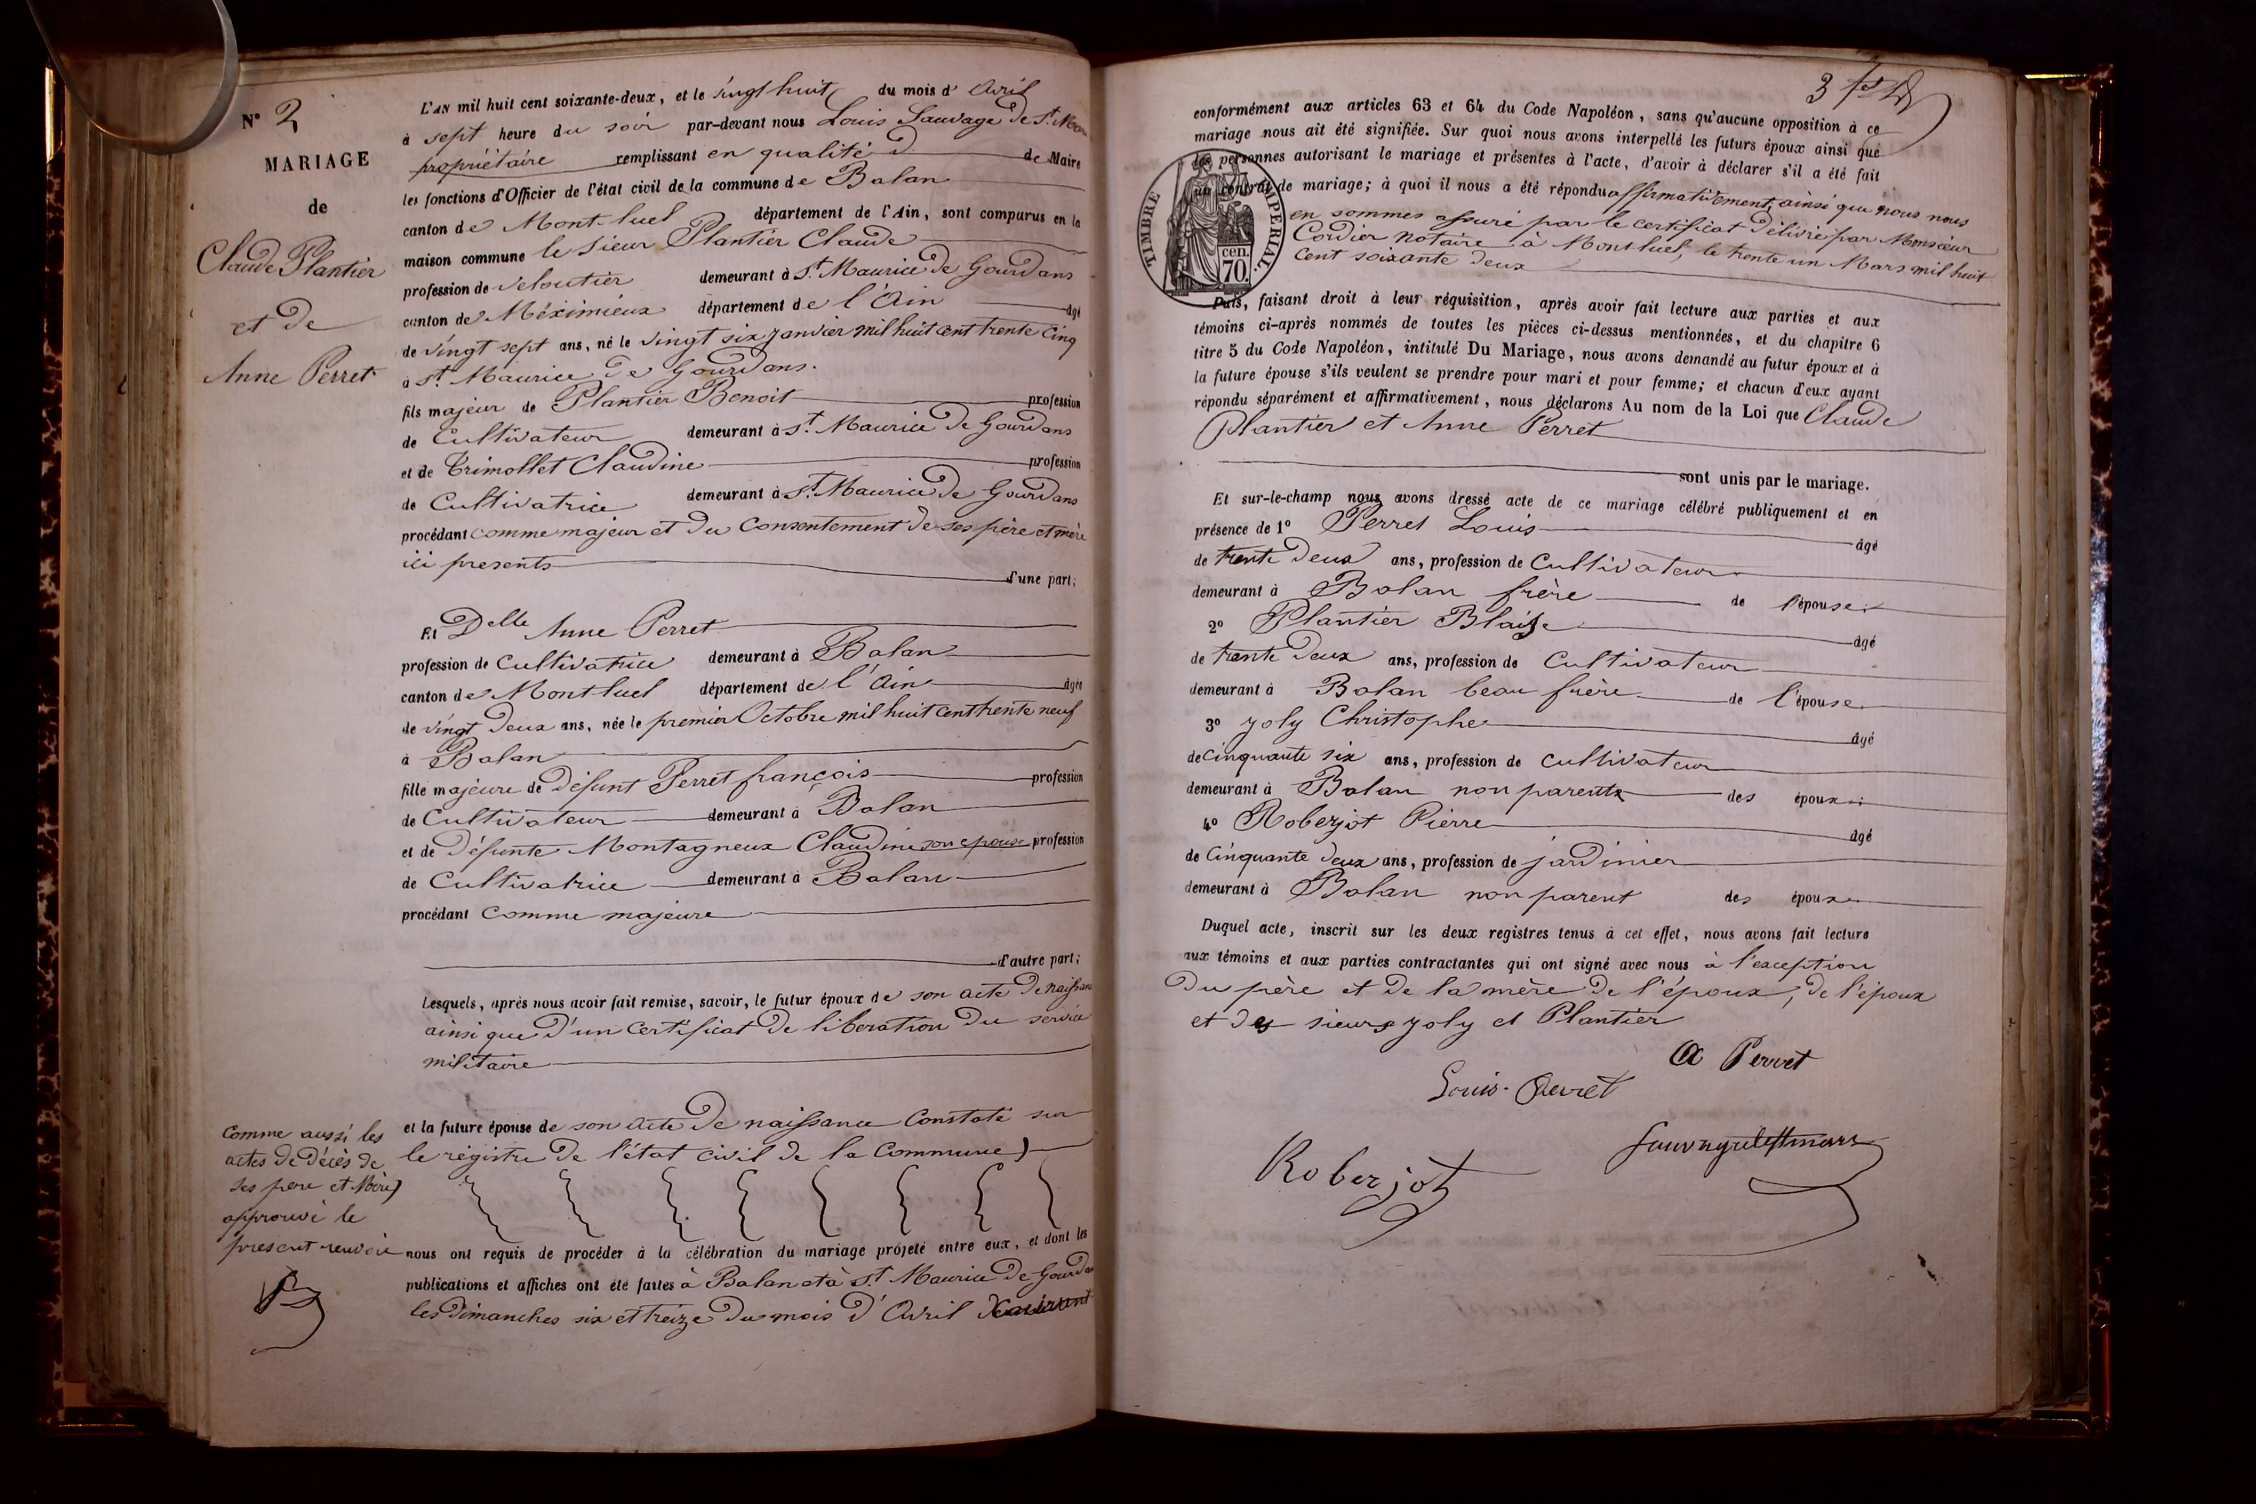 N° 2
MARIAGE
de
Claude Plantier
et de
Anne Perret
L'AN mil huit cent soixante-deux, et le vingt huit du mois d' Avril
à sept heure du soir par-devant nous Louis Sauvage de St. Mars
propriétaire remplissant en qualité de Maire
les fonctions d'Officier de l'état civil de la commune de Balan
canton de Mont-luel département de l'Ain, sont comparus en la
maison commune le sieur Plantier Claude
profession de veloutier demeurant à St. Maurice de Gourdans
canton de Méximieux département de l'Ain âgé
de vingt sept ans, né le vingt six janvier mil huit cent trente cinq
à St. Maurice de Gourdans.
fils majeur de Plantier Benoit profession
de Cultivateur demeurant à St. Maurice de Gourdans
et de Trimollet Claudine profession
de Cultivatrice demeurant à St. Maurice de Gourdans
procédant comme majeur et du consentement de ses père et mère
ici presents d'une part;
Et Delle Anne Perret
profession de Cultivatrice demeurant à Balan
canton de Montluel département de l'Ain âgée
de vingt deux ans, née le premier Octobre mil huit cent trente neuf
à Balan
fille majeure de défunt Perret françois profession
de Cultivateur demeurant à Balan
et de défunte Montagneux Claudine son epouse profession
de Cultivatrice demeurant à Balan
procédant comme majeure
d'autre part;
Lesquels, après nous avoir fait remise, savoir, le futur époux de son acte de naissance
ainsi que d'un certificat de liberation du service
militaire
et la future épouse de son acte de naissance Constaté sur
le registre de l'état civil de la Commune)
Comme aussi les
actes de Décès de
ses pere et Mère)
approuvé le
present renvoi
nous ont requis de procéder à la célébration du mariage projeté entre eux, et dont les
publications et affiches ont été faites à Balan et à St. Maurice de Gourdans
les dimanches six et treize du mois d'Avril courant
3
conformément aux articles 63 et 64 du Code Napoléon, sans qu'aucune opposition à ce
mariage nous ait été signifiée. Sur quoi nous avons interpellé les futurs époux ainsi que
les personnes autorisant le mariage et présentes à l'acte, d'avoir à déclarer s'il a été fait
un contrat de mariage; à quoi il nous a été répondu affirmativement, ainsi que nous nous
en sommes assuré par le certificat délivré par Monsieur
Cordier notaire à Montluel, le trente un Mars mil huit
cent soixante deux
TIMBRE IMPERIAL.
cen.
70
Puis, faisant droit à leur réquisition, après avoir fait lecture aux parties et aux
témoins ci-après nommés de toutes les pièces ci-dessus mentionnées, et du chapitre 6
titre 5 du Code Napoléon, intitulé Du Mariage, nous avons demandé au futur époux et à
la future épouse s'ils veulent se prendre pour mari et pour femme; et chacun d'eux ayant
répondu séparément et affirmativement, nous déclarons Au nom de la Loi que Claude
Plantier et Anne Perret
sont unis par le mariage.
Et sur-le-champ nous avons dressé acte de ce mariage célébré publiquement et en
présence de 1° Perret Louis âgé
de trente deux ans, profession de Cultivateur
demeurant à Balan frère de l'épouse
2° Plantier Blaise âgé
de trente deux ans, profession de Cultivateur
demeurant à Balan beau frère de l'épouse
3° Joly Christophe âgé
de cinquante six ans, profession de Cultivateur
demeurant à Balan non parent des époux
4° Roberjot Pierre âgé
de Cinquante deux ans, profession de jardinier
demeurant à Balan non parent des époux
Duquel acte, inscrit sur les deux registres tenus à cet effet, nous avons fait lecture
aux témoins et aux parties contractantes qui ont signé avec nous à l'exception
du père et de la mère de l'époux, de l'époux
et des sieurs Joly et Plantier
A Perret
Louis Perret
Roberjot